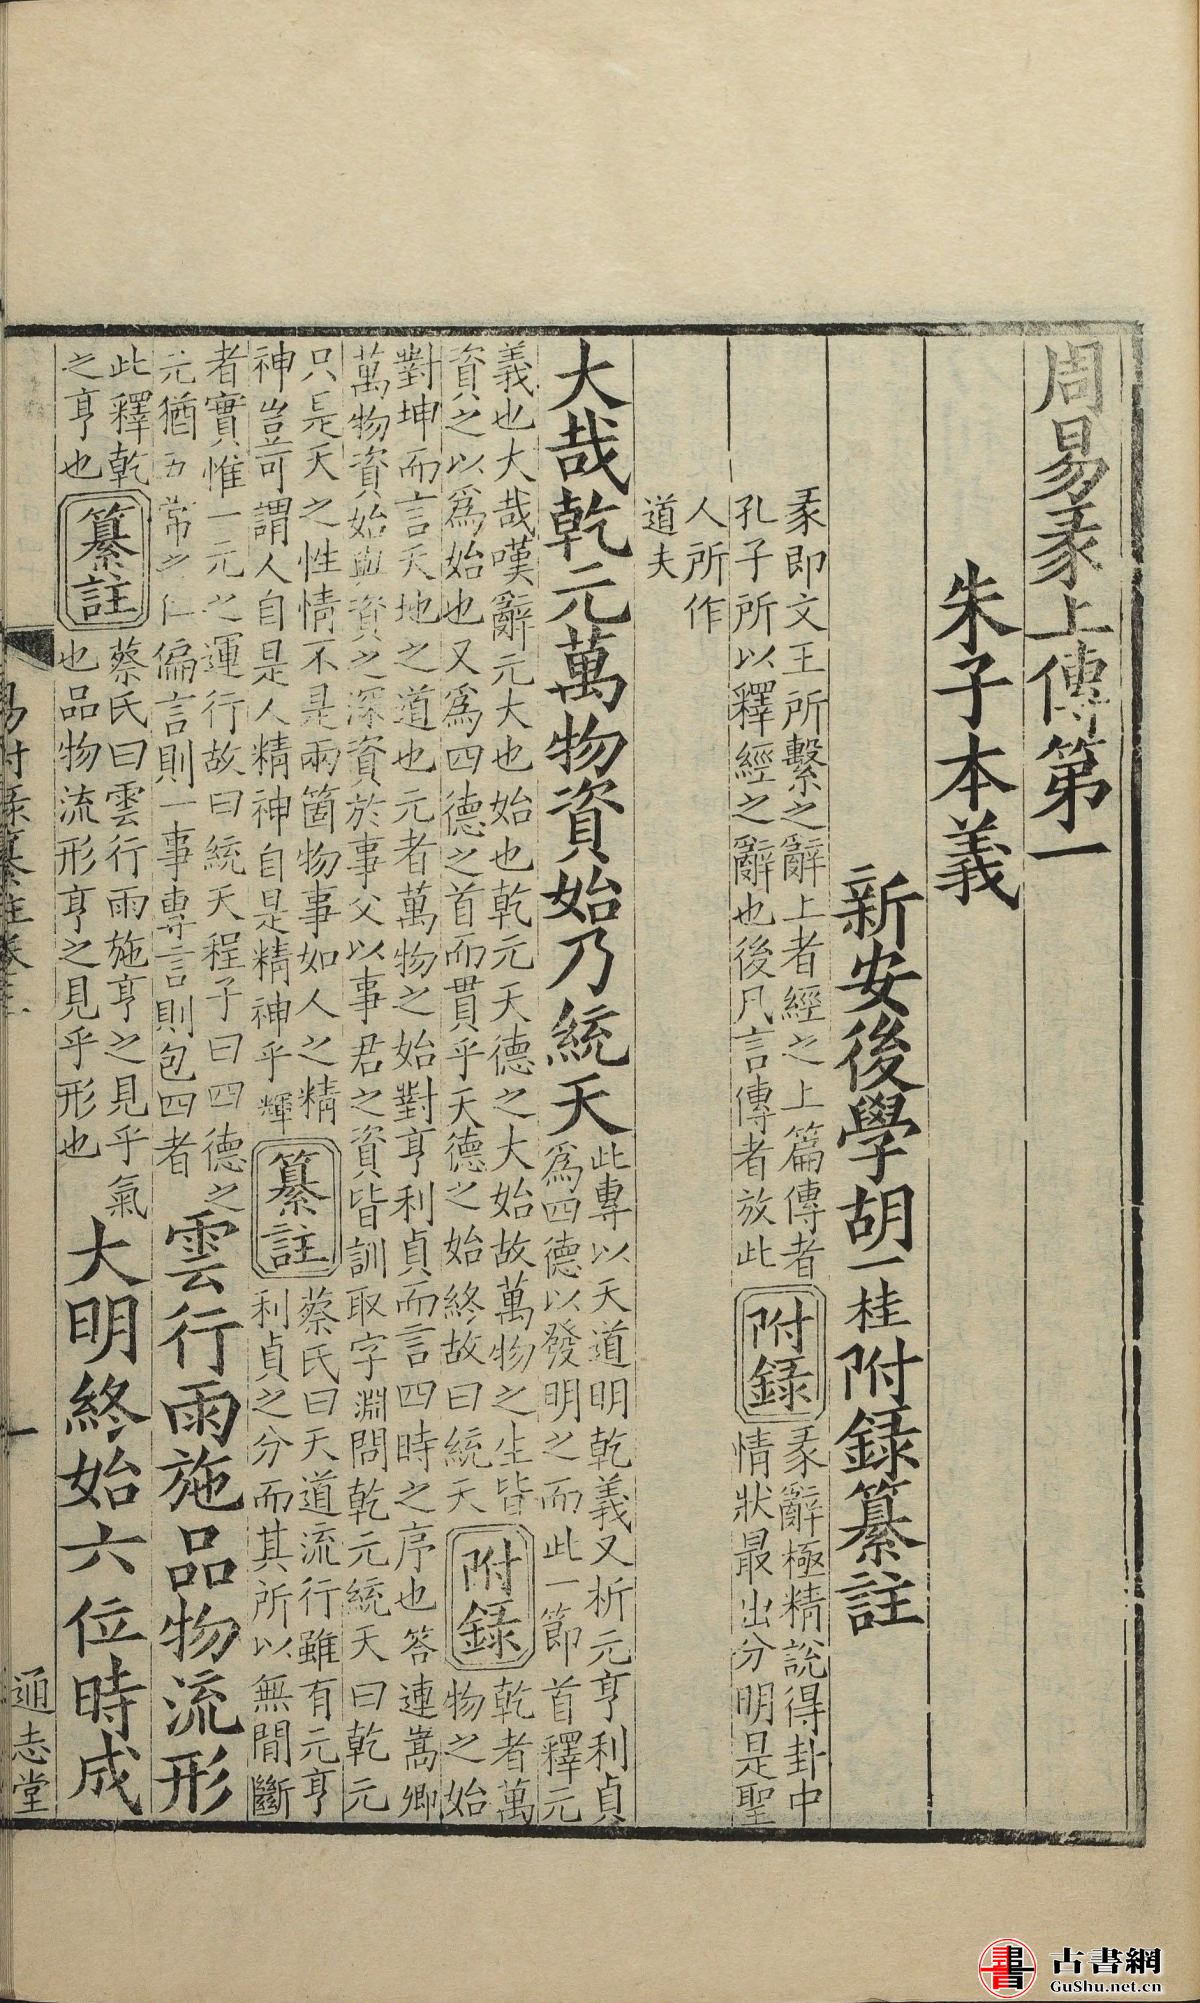 周易彖上傳第一
朱子本義
新安後學胡一桂附録纂註
彖即文王所繫之辭上者經之上篇傳者
孔子所以釋經之辭也後凡言傳者放此
附録
彖辭極精說得卦中
情狀最出分明是聖
人所作
道夫
大哉乾元萬物資始乃統天
此專以天道明乾義又析元亨利貞
爲四德以發明之而此一節首釋元
義也大哉嘆辭元大也始也乾元天德之大始故萬物之生皆
資之以爲始也又爲四德之首而貫乎天德之始終故曰統天
附録
乾者萬
物之始
對坤而言天地之道也元者萬物之始對亨利貞而言四時之序也答連嵩卿
萬物資始血資之深資於事父以事君之資皆訓取字淵問乾元統天曰乾元
只是天之性情不是兩箇物事如人之精
神豈可謂人自是人精神自是精神乎輝
纂註
蔡氏曰天道流行雖有元亨
利貞之分而其所以無間斷
者實惟一元之運行故曰統天程子曰四德之
元猶五常之仁偏言則一事專言則包四者
雲行雨施品物流形
此釋乾
之亨也
纂註
蔡氏曰雲行雨施亨之見乎氣
也品物流形亨之見乎形也
大明終始六位時成
易附録纂註卷三
一
通志堂
古書網
GuShu.net.cn